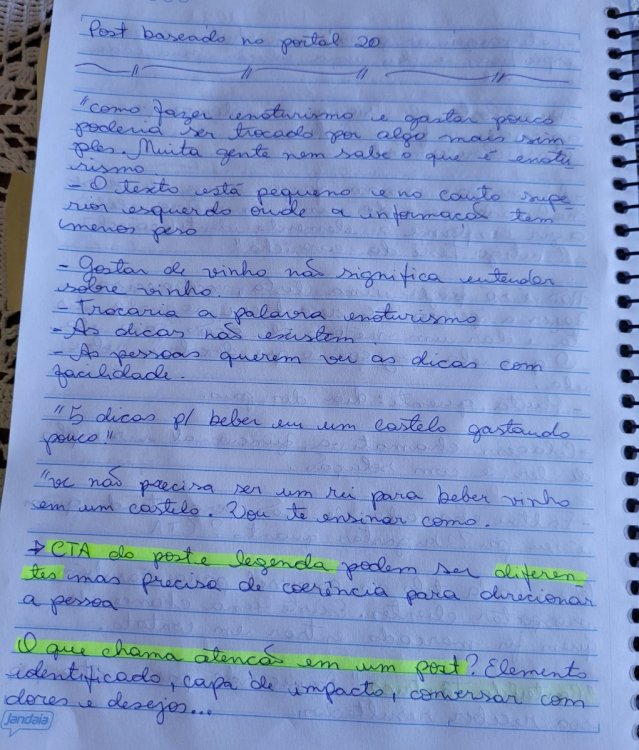 Post baseado no portal 20
"como fazer enoturismo e gastar pouco
poderia ser trocado por algo mais sim
ples. Muita gente nem sabe o que é enotu
rismo
- O texto está pequeno e no canto supe-
rior esquerdo onde a informação tem
menos peso
- Gostar de vinho não significa entender
sobre vinho.
- Trocaria a palavra enoturismo
- As dicas não existem
- As pessoas querem ver as dicas com
facilidade.
"5 dicas p/ beber em um castelo gastando
pouco"
"vc não precisa ser um rei para beber vinho
em um castelo. Vou te ensinar como.
→ CTA do post e legenda podem ser diferen-
tes mas precisa de coerência para direcionar
a pessoa
O que chama atencão em um post? Elemento
identificado, capa de impacto, conversar com
dores e desejos...
Jandaia